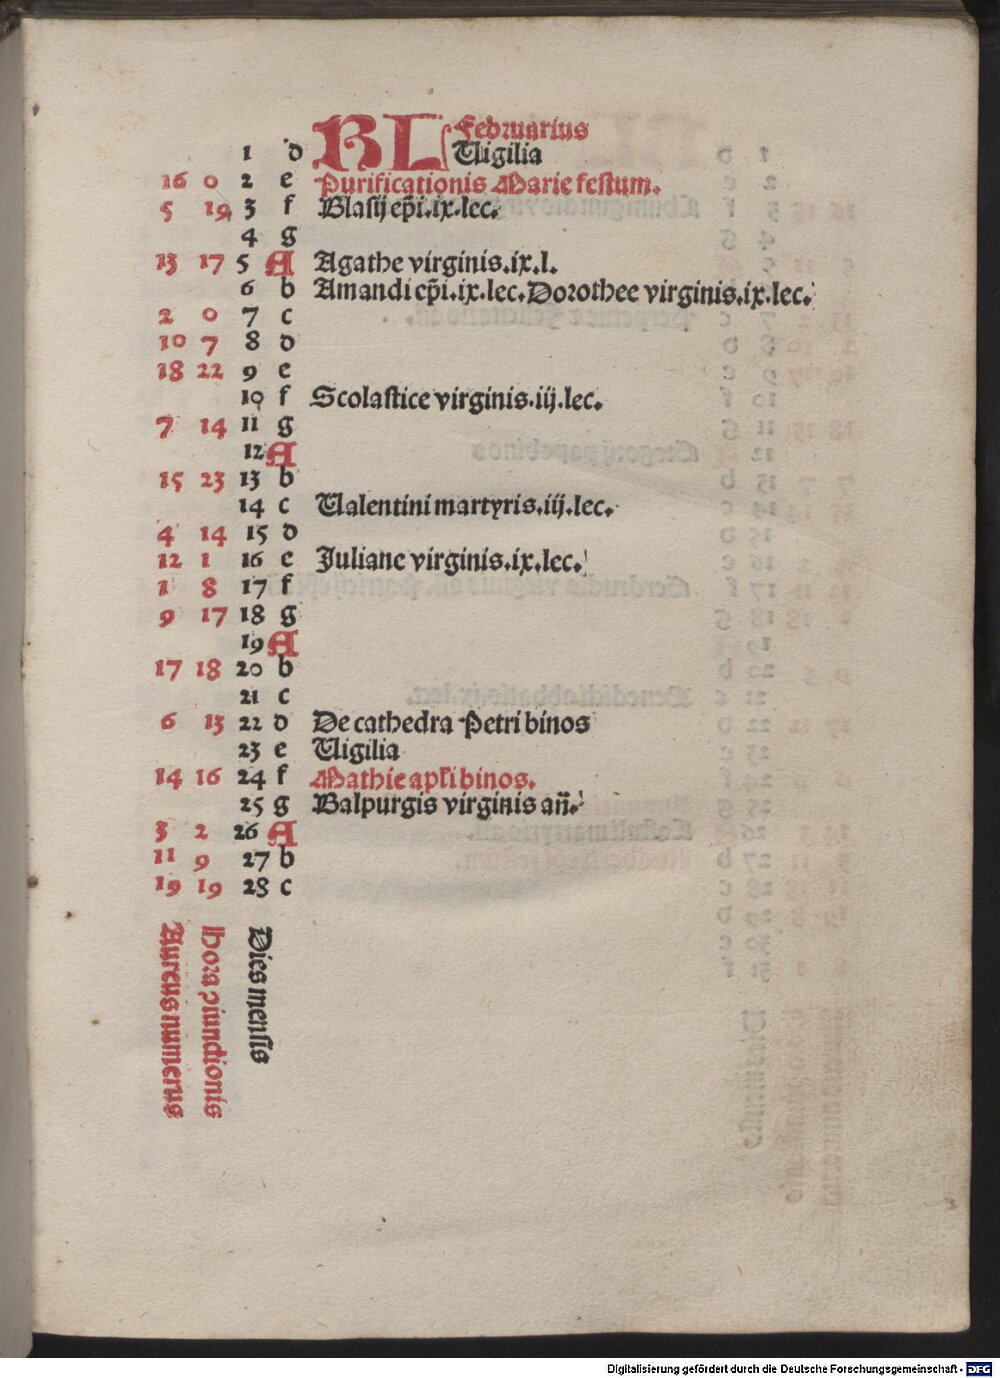 KL Februarius
1 d Uigilia
16 0 2 e Purificationis Marie festum.
5 19 3 f Blasij ep̃i.ix.lec.
4 g
13 17 5 A Agathe virginis.ix.l.
6 b Amandi ep̃i.ix.lec. Dorothee virginis.ix.lec.
2 0 7 c
10 7 8 d
18 22 9 e
10 f Scolastice virginis.iij.lec.
7 14 11 g
12 A
15 23 13 b
14 c Ualentini martyris.iij.lec.
4 14 15 d
12 1 16 e Juliane virginis.ix.lec.
1 8 17 f
9 17 18 g
19 A
17 18 20 b
21 c
6 13 22 d De cathedra Petri binos
23 e Uigilia
14 16 24 f Mathie apľi binos.
25 g Balpurgis virginis añ.
3 2 26 A
11 9 27 b
19 19 28 c
Aureus numerus
Hora ɔiunctionis
Dies mensis
Digitalisierung gefördert durch die Deutsche Forschungsgemeinschaft - DFG